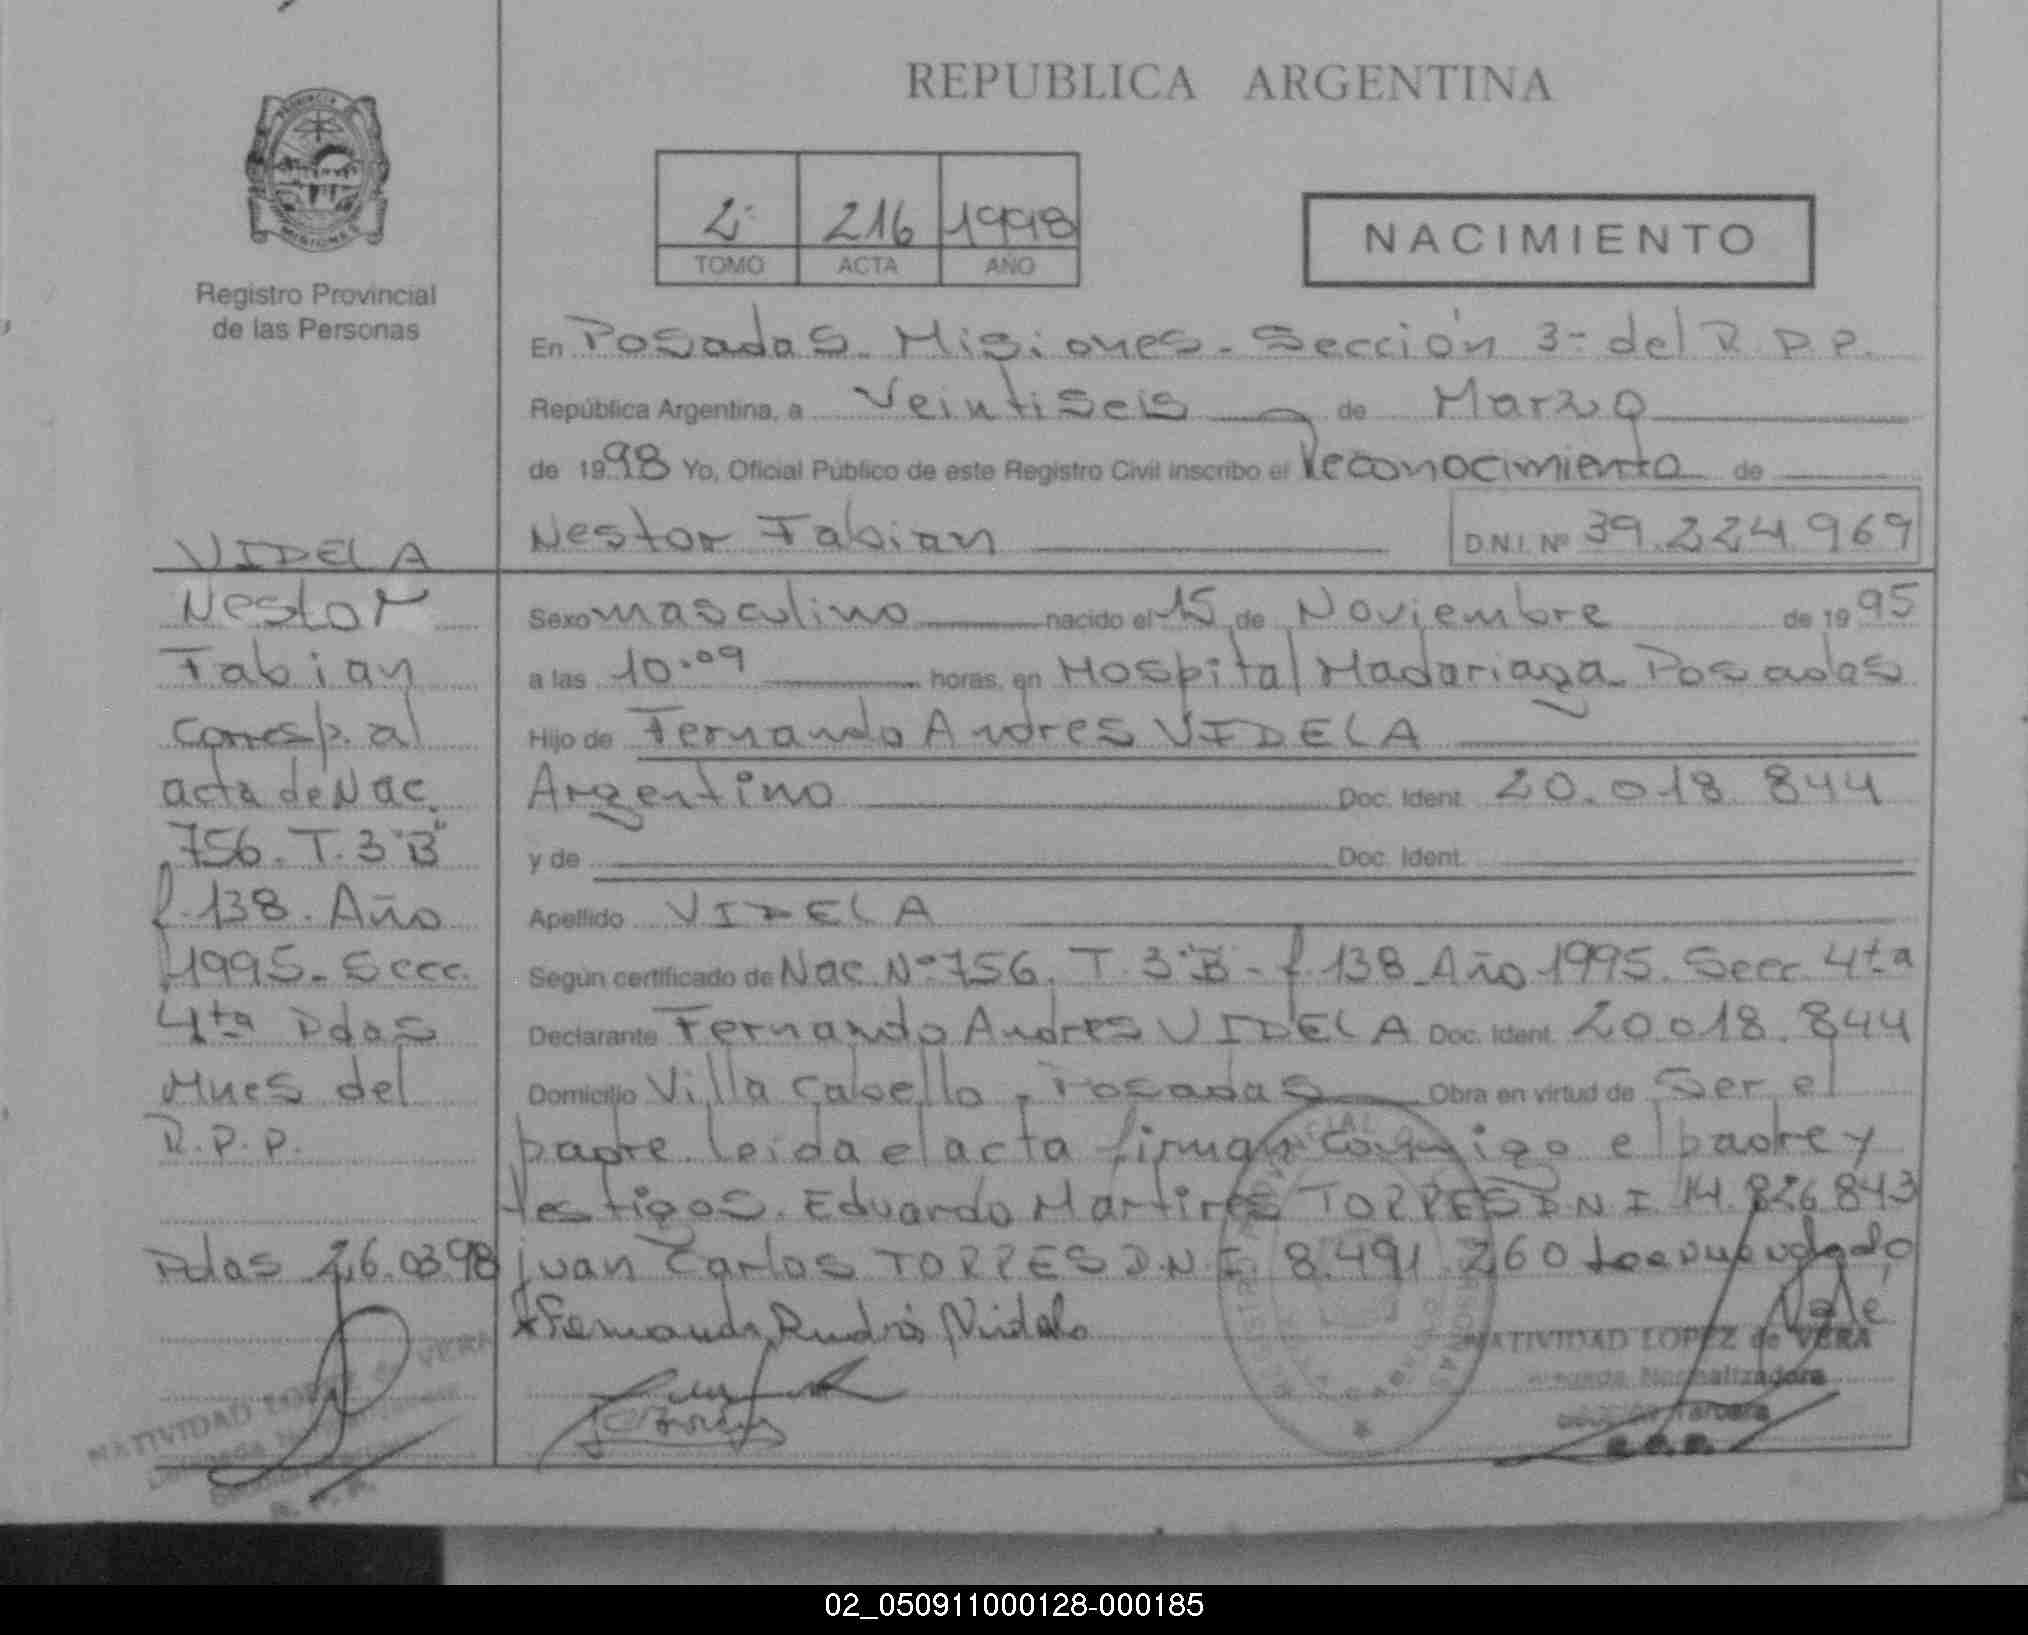 REPUBLICA ARGENTINA
PROVINCIA
MISIONES
Registro Provincial
de las Personas
2º 216 1998
TOMO ACTA AÑO
NACIMIENTO
En Posadas. Misiones. Sección 3ª del R.P.P.
República Argentina, a Veintiseis de Marzo
de 1998 Yo, Oficial Público de este Registro Civil inscribo el Reconocimiento de
Nestor Fabian D.N.I. Nº 39.224.969
Sexo masculino nacido el 15 de Noviembre de 1995
a las 10.09 horas, en Hospital Madariaga Posadas
Hijo de Fernando Andres VIDELA
Argentino Doc. Ident. 20.018.844
y de Doc. Ident.
Apellido VIDELA
Según certificado de Nac. Nº 756. T. 3"B" - f. 138 Año 1995. Secc 4ta
Declarante Fernando Andres VIDELA Doc. Ident. 20.018.844
Domicilio Villa Cabello, Posadas Obra en virtud de Ser el
padre. leida el acta firman conmigo el padre y
testigos. Eduardo Martires TORRES D.N.I. 14.826.843
Juan Carlos TORRES D.N.I. 8.491.260
Vale
NATIVIDAD LOPEZ de VERA
Normalizadora
Sección Tercera
R.P.P.
VIDELA
Nestor
Fabian
corresp. al
acta de Nac.
756. T. 3"B"
f. 138. Año
1995. Secc.
4ta Pdas
Mnes del
R.P.P.
Pdas 26.03.98
NATIVIDAD LOPEZ de VERA
02_050911000128-000185